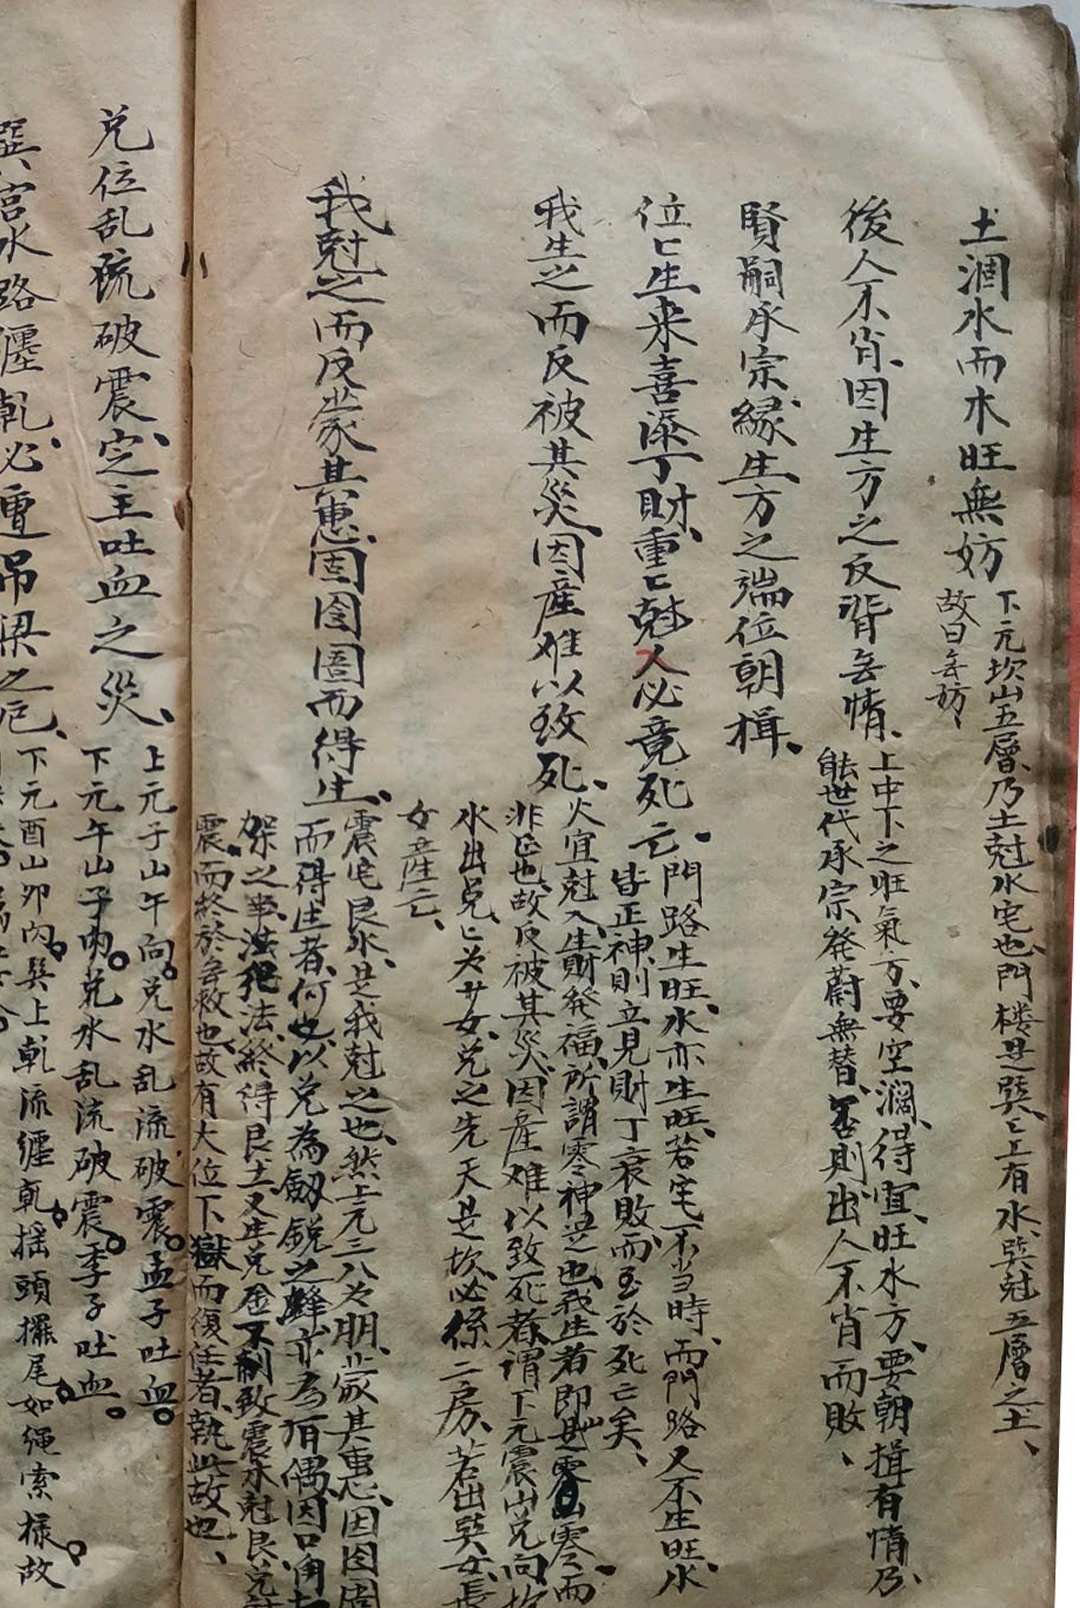 土涸水而木旺無妨
下元坎山五層、乃土尅水宅也、門楼是巽、〻上有水、巽尅五層之土、
故曰無妨、
後人不肖、因生方之反背無情、
上中下之旺氣方、要空濶、得宜、旺水方、要朝揖有情、乃
能世代承宗、發蔚無替、否則出人不肖而敗、
賢嗣承宗、緣生方之端位朝揖、
位〻生來喜添丁財、重〻尅人必竟死亡、
門路生旺、水亦生旺、若宅不当時、而門路又不生旺、水
皆正神、則立見財丁衰敗、而至於死亡矣、
我生之而反被其災、因産难以致死、
火宜尅入、生財發福、所謂零神是也、我生者即是零山零而
非正也、故反被其災、因産难以致死者、謂下元震山兑向、坎
水出兑、〻为少女、兑之先天是坎、必係二房、若出巽女、長
女産亡、
我尅之而反蒙其惠、固囹圄而得生、
震宅艮水、是我尅之也、然上元三八为朋、蒙其惠、因囹圄
而得生者、何也、以兑為劔銳之鋒、亦为有偶、因口角
架之事、法犯法、終得艮土又生兑金、不制致震木尅艮、兑
震、而終於争救也、故有大位下獄而復任者、執此故也、
兑位乱流破震、定主吐血之災、
上元子山午向。兑水乱流破震。孟子吐血。
下元午山子向。兑水乱流破震。季子吐血。
巽宫水路纒乾、必遭吊梁之厄、
下元酉山卯向。巽上乾流纒乾。摇頭擺尾。如绳索樣。故